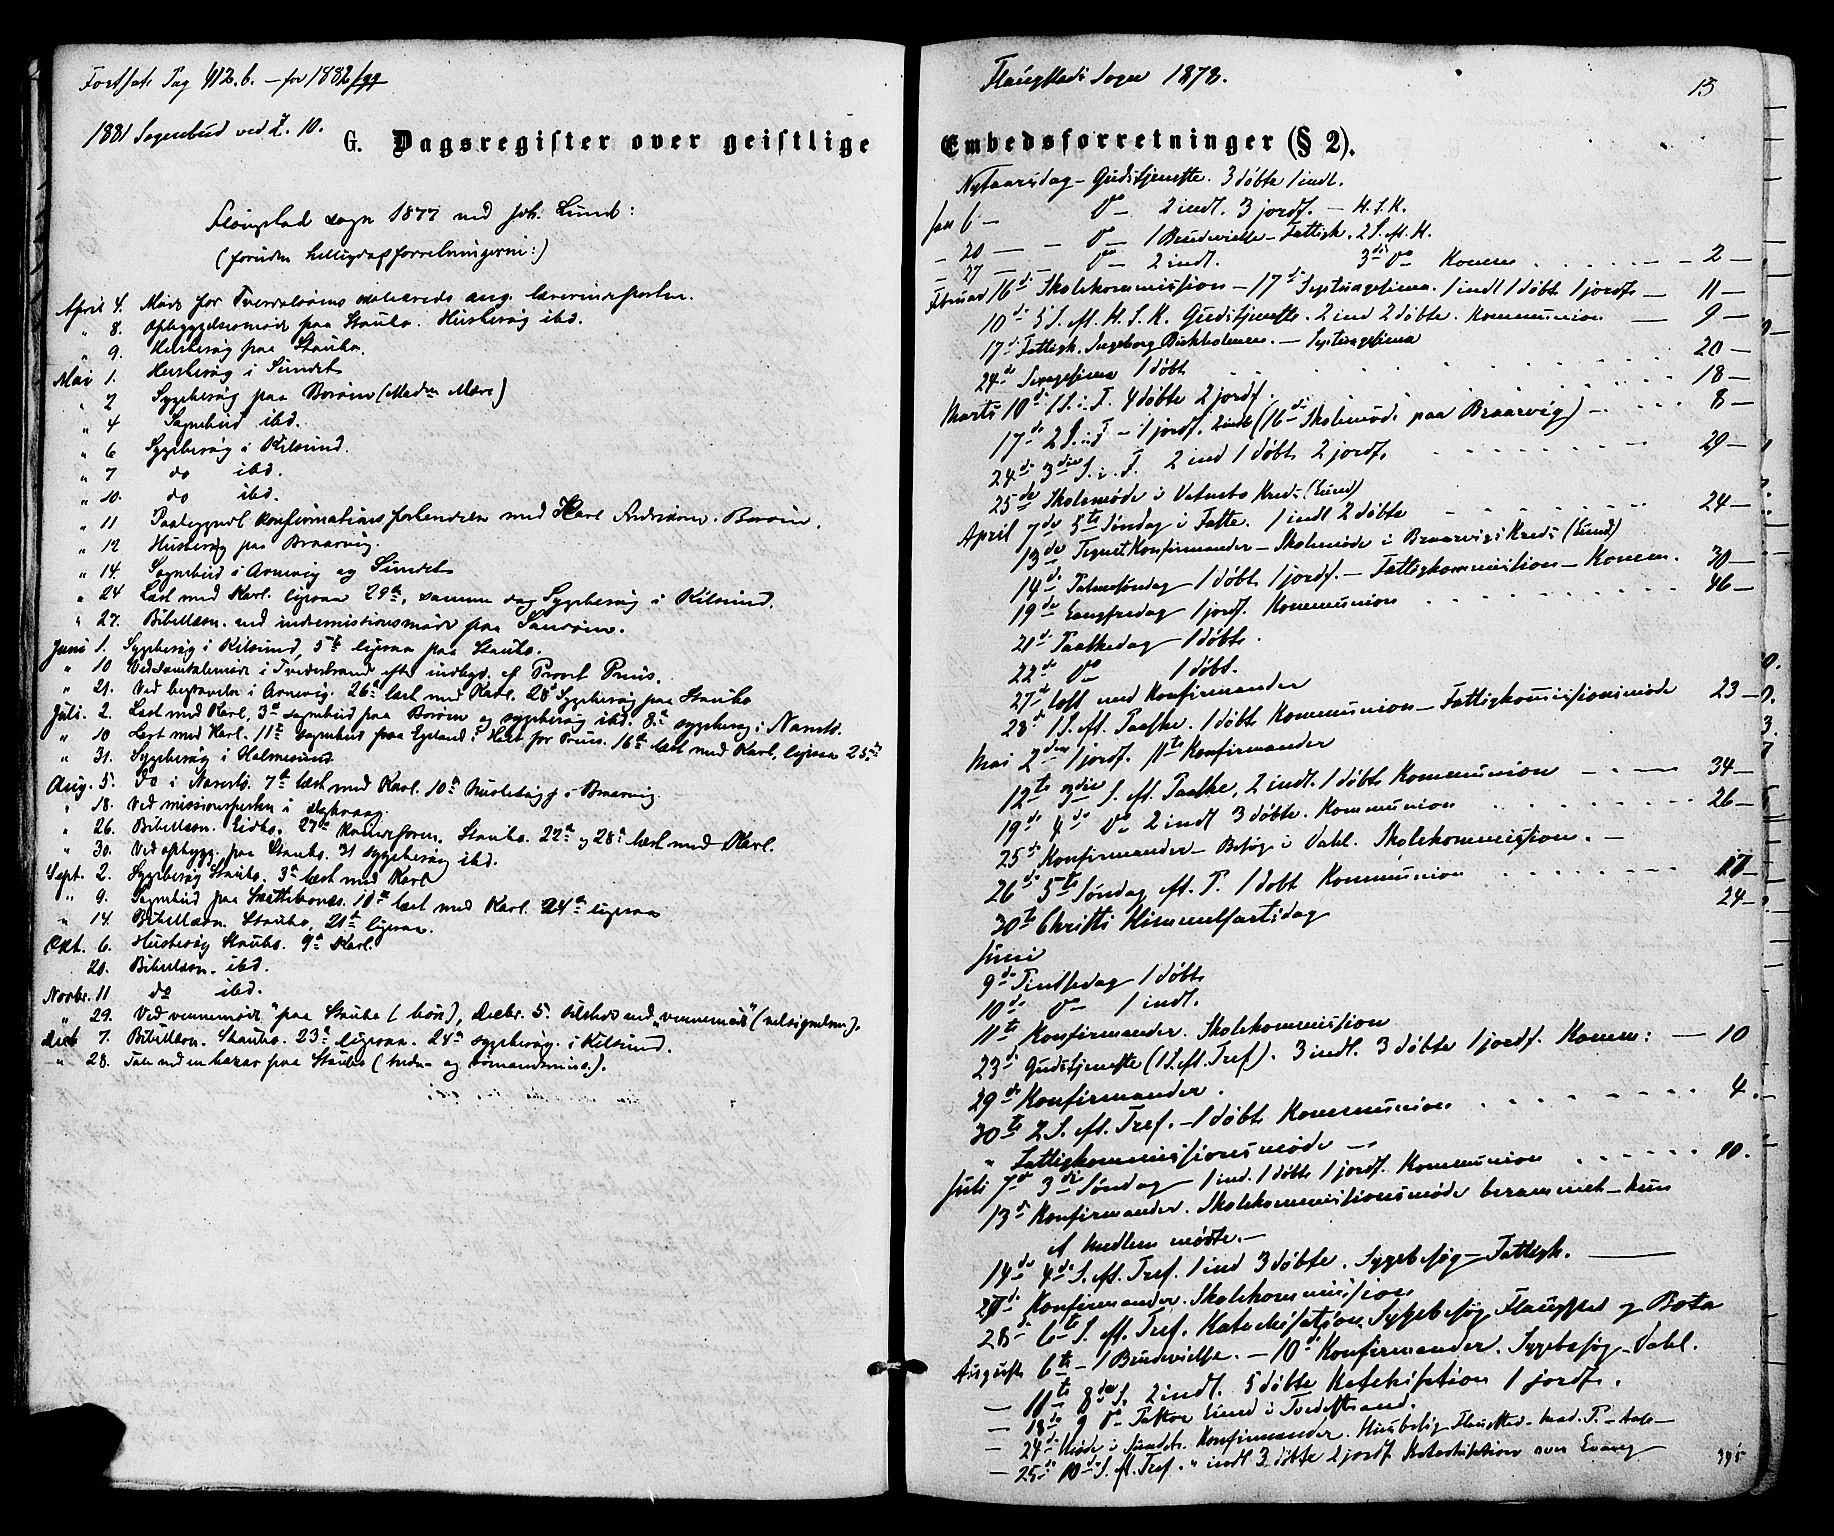 Fortsat Pag 412.b. – for 1882 fgg
1881 Sognebud ved L. 10.
G. Dagsregister over geistlige
Flangstad sogn 1877 ved Joh. Lund:
(foruden helligdagsforretningerne:)
April 4. Møde for Tverdalsøens ang. lærerindeposten.
" 8. Opbyggelsesmøde paa Staubo. Husbesøg ibd.
" 9. Husbesøg paa Staubo.
Mai 1. Husbesøg i Sundet
" 2 Sygebesøg paa Borøen
" 4 Sognebud ibd.
" 6 Sygebesøg i Kilsund.
" 7 do ibd.
" 10. do ibd.
" 11 Paabegyndt konfirmationsforberedelsen med Karl Borøen.
" 12 Husbesøg paa Braarvig.
" 14. Sognebud i Arnevig og Sundet
" 24 Læst med Karl. ligesaa 29de, samme dag Sygebesøg i Kilsund.
" 27. Bibellæsn. ved indremissionsmøde paa Sandøen.
Juni 1. Sygebesøg i Kilsund, 5te ligesaa paa Staubo.
" 10 Ved samtalemøde i Tvedestrand efter indbyd. af Provst Preus.
" 21. Ved begravelse i Arnevig. 26de læst med Karl. 28de Sygebesøg paa Staubo
Juli. 2. Læst med Karl, 3de sognebud paa Borøen og sygebesøg ibd. 8de sygebesøg i Narestø.
" 10 Læst med Karl. 11te sognebud paa Egeland i Holt for Preus. 16de læst med Karl, ligesaa 25de
" 31. Sygebesøg i Holmesund.
Aug. 5. Do i Narestø. 7de læst med Karl. 10de husbesøg i Braarvig.
" 18. Ved missionsfesten i Dybvaag
" 26. Bibellæsn. Eidbo. 27de Staubo. 22de og 28de læst med Karl.
" 30. Ved opbygg. paa Staubo. 31 sygebesøg ibd.
Sept. 2. Sygebesøg Staubo. 3de læst med Karl
" 9. Sognebud paa 10de læst med Karl 24de ligesaa
" 14. Bibellæsn. Staubo, 21de ligesaa.
Okt. 6. Husbesøg Staubo. 9de Karl.
20. Bibellæsn. ibd.
Novbr. 11 do ibd.
" 29. Ved vennemøde" paa Staubo (bøn), Decbr. 5. tilsted ved „vennemøde" (velsignelsen).
Decb 7. Bibellæsn. Staubo. 23de ligesaa. 24de sygebesøg i Kilsund.
" 28. Tale ved en bazar paa Staubo (indre- og sømandsmiss.).
Flangstads Sogn 1878.
13
Embedsforretninger (§ 2).
Nytaarsdag – Gudstjeneste. 3 døbte 1 indl.
Jan 6 – Do – 2 indl. 3 jordf. – H. 3. K.
– 20 – – Do – 1 Brudevielse – Fattigk. 2 S. ef. H.
– 27 – – Do – 2 indl. 3die Do Komm – 2 –
Februar 16de Skolekommission – 17de Septuagesima. 1 indl 1 døbt 1 jordf. – 11 –
10de 5 S. ef. H. 3. K. Gudstjeneste. 2 ind 2 døbte. Kommunion – 9 –
17de Fattigk. Ingeborg – Septuagesima 20 –
24de Sexagesima 1 døbt 18 –
Marts 10de 1 S. i F. 4 døbte 2 jordf. 8 –
17de 2 S. i F – 1 jordf. 2 indl (16de Skolemøde paa Braarvig) –
24de 3die S. i F. 2 ind 1 døbt 2 jordf. 29 –
25de Skolemøde i Vatnebo Kreds (Lund)
April 7de 5te Søndag i Faste. 1 indl 2 døbte 24 –
13de Konfirmander – Skolemøde i Braarvigs Kreds (Lund)
14de Palmesøndag – 1 døbt 1 jordf. – Fattigkommission – Komm. 30 –
19de Langfredag 1 jordf. Kommunion 46 –
21de Paaskedag 1 døbt.
22de Do 1 døbt.
27de læst med Konfirmander
28de 1 S. ef. Paaske. 1 døbt Kommunion – Fattigkommissionsmøde 23 –
Mai 2den 1 jordf. 11te Konfirmander
12te 3die S. ef. Paaske, 2 indl. 1 døbt Kommunion 34 –
19de 4de Do 2 indl 3 døbte. Kommunion 26 –
25de Konfirmander – Besøg i Vahl. Skolekommission. –
26de 5te Søndag ef. P. 1 døbt Kommunion 17 –
30te Christi Himmelfartsdag 24 –
Juni
9de Pintsedag 1 døbt
10de Do 1 indl.
11te Konfirmander. Skolekommission
23de Gudstjeneste (1 S. ef. Tref). 3 indl. 3 døbte 1 jordf. Komm: – 10
29de Konfirmander.
30te 2 S. ef. Tref. – 1 døbt Kommunion 4.
" Fattigkommissionsmøde –
Juli 7de 3die Søndag – 1 ind. 1 døbt 1 jordf. Kommunion 10.
13de Konfirmander. Skolekommissionsmøde berammet – kun
et medlem mødte. –
14de 4de S. ef. Tref. 1 ind 3 døbte. Sygebesøg – Fattigk.
27de Konfirmander. Skolekommission
28de 6te S. ef. Tref. Katechisation. Sygebesøg Flangstad og Bota
August 6te – 1 Brudevielse. – 10de Konfirmander. Sygebesøg – Vahl.
– 11te 8de S. 2 indl. 5 døbte Katechisation 1 jordf.
– 18de 9 Do Pastor Lund i Tvedestrand.
– 24de Møde i Sundet. Konfirmander. Husbesøg Flangstad –
– 25de 10de S. ef. Tref. " indl 3 døbte 2 jordf Katechisation over Evang
395